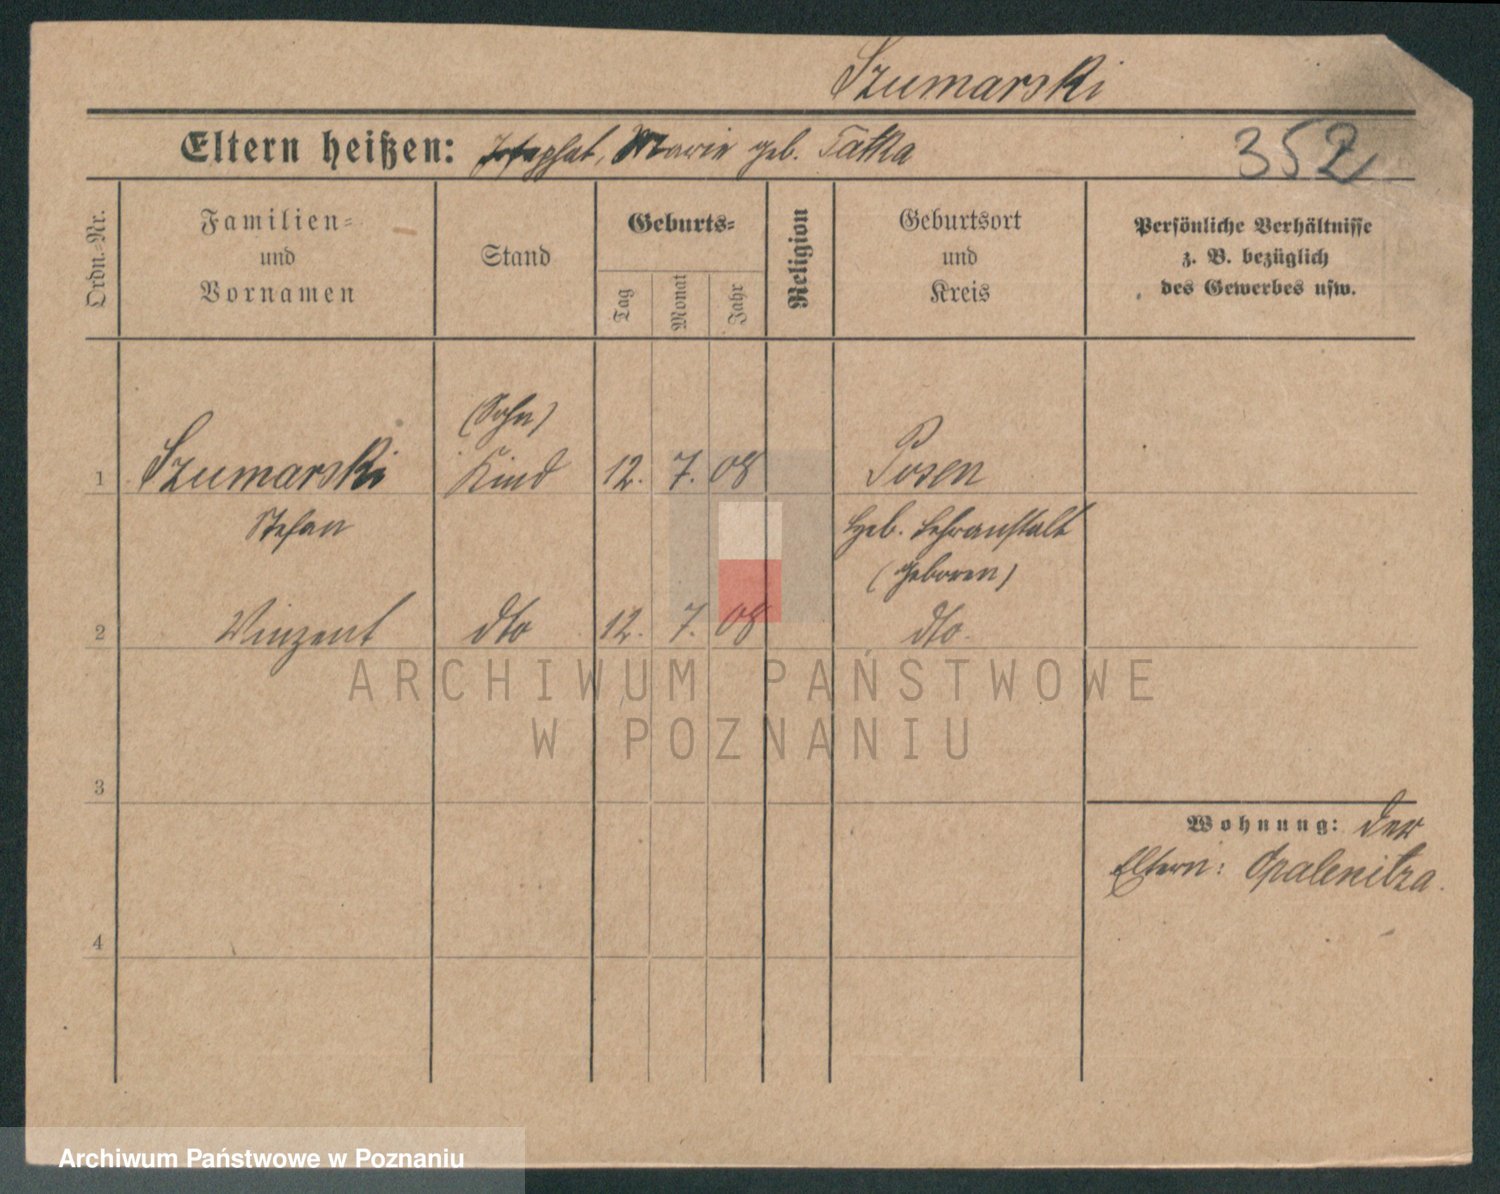 Szumarski
Eltern heißen: Josaphat, Marie geb. Tatka
352
Ordn.-Nr.
Familien-
und
Vornamen
Stand
Geburts-
Tag
Monat
Jahr
Religion
Geburtsort
und
Kreis
Persönliche Verhältnisse
z. B. bezüglich
des Gewerbes usw.
(Sohn)
1 Szumarski Kind 12. 7. 08 Posen
Stefan Heb. Lehranstalt
(geboren)
2 Vinzent dto 12. 7. 08 dto.
ARCHIWUM PAŃSTWOWE
W POZNANIU
3
Wohnung: der
Eltern: Opalenitza.
4
Archiwum Państwowe w Poznaniu